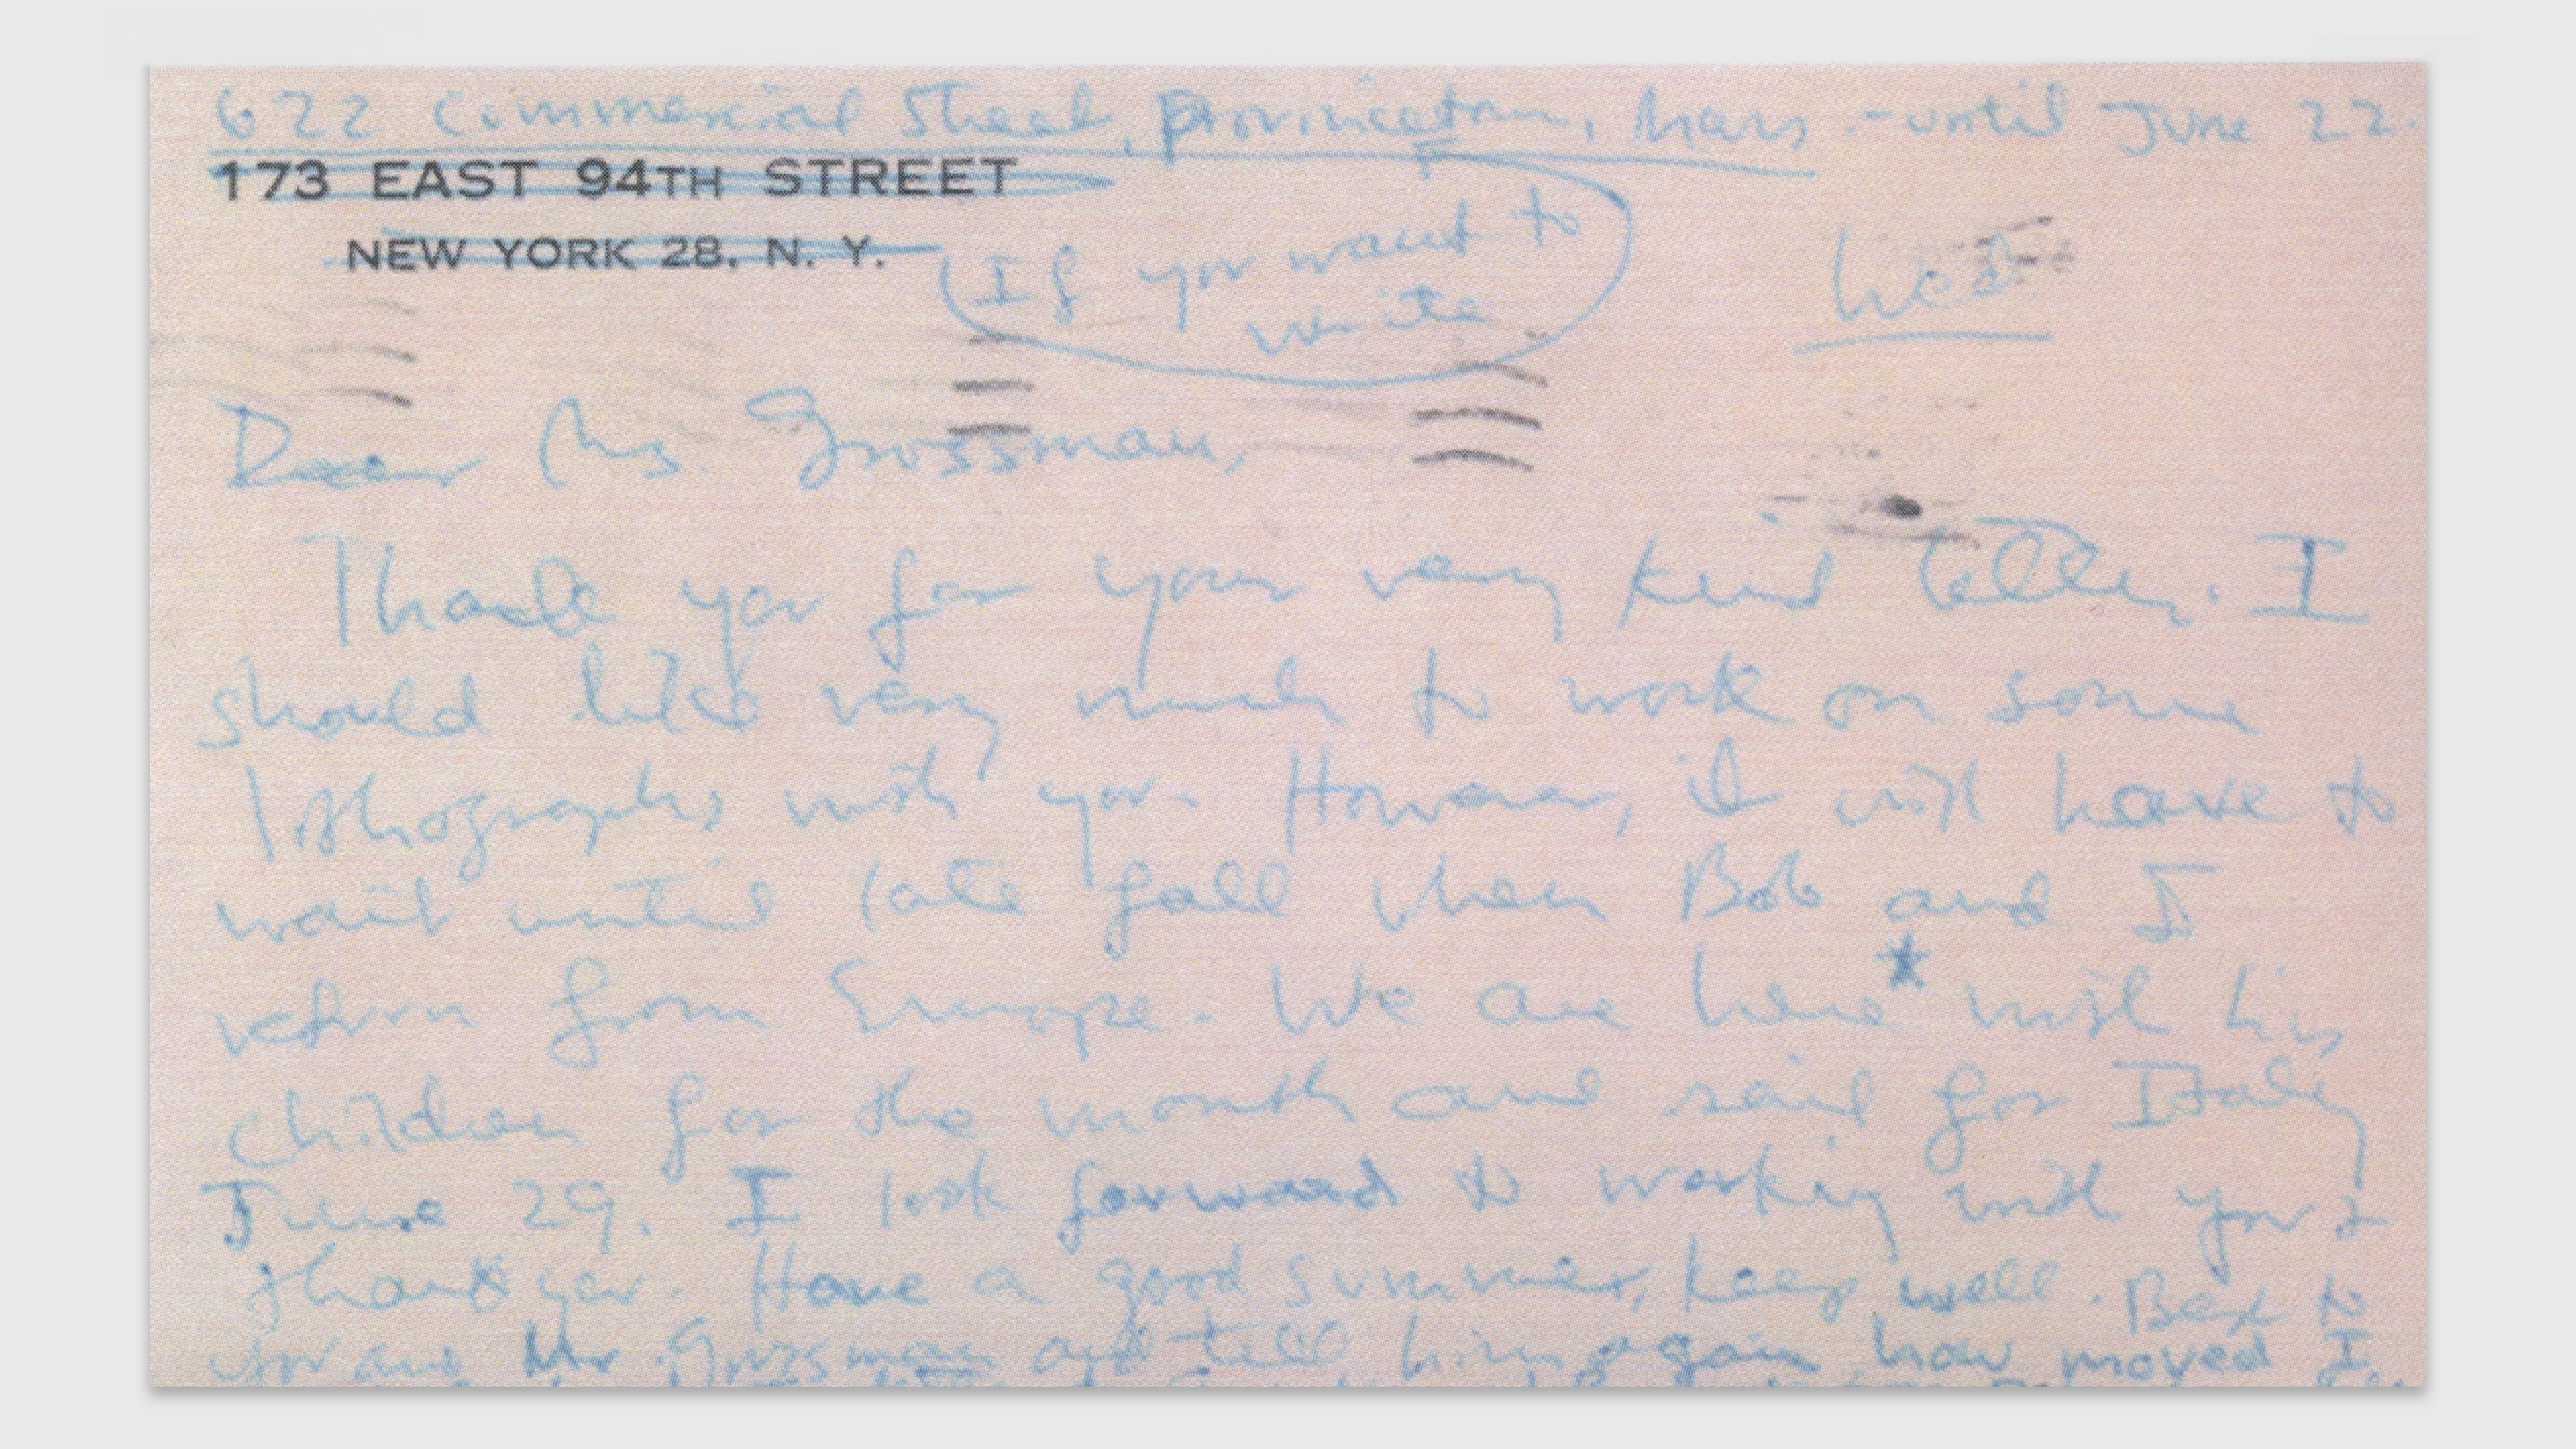 622 Commercial Street, Provincetown, Mass. - until June 22.
173 EAST 94TH STREET
NEW YORK 28, N. Y.
If you want to
write
Wed
Dear Mrs. Grossman,
Thank you for your very kind letter. I
should like very much to work on some
lithographs with you. However, it will have to
wait until late fall when Bob and I
return from Europe. We are here* with his
children for the month and sail for Italy
June 29. I look forward to working with you &
thank you. Have a good summer, keep well. Best to
you and Mr. Grossman and tell him again how moved I